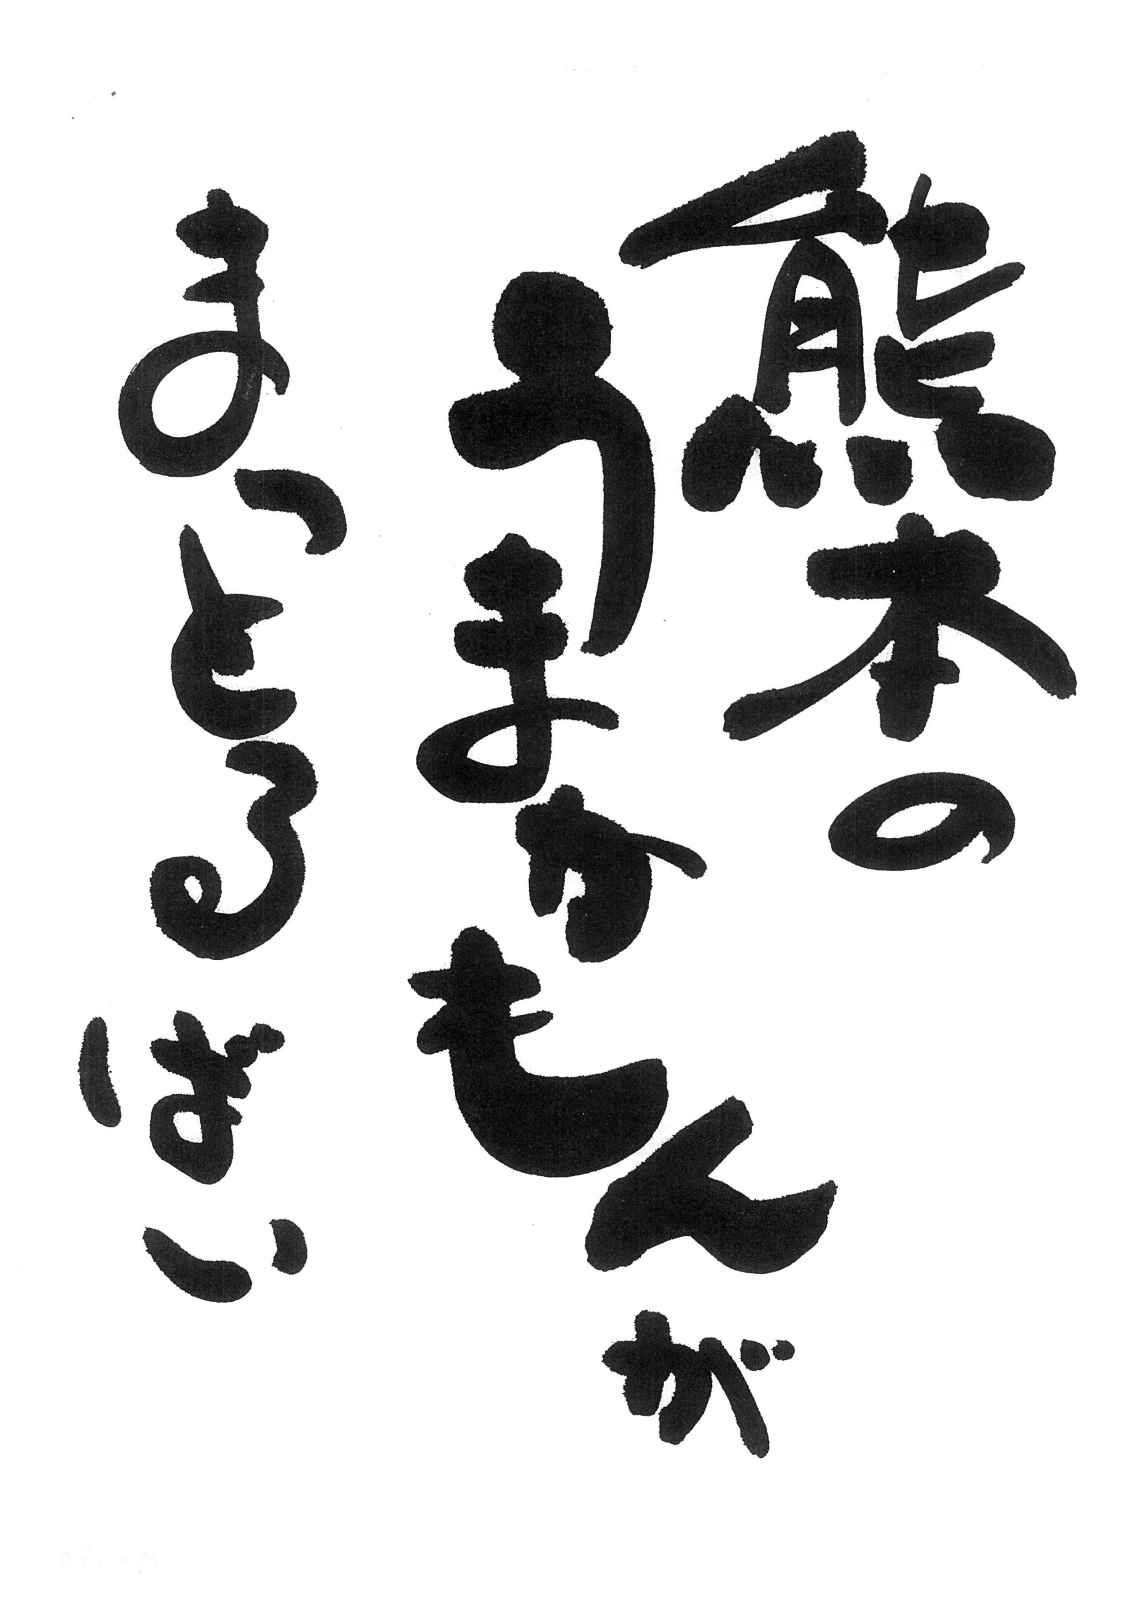 熊本の
うまかもんが
まっとるばい